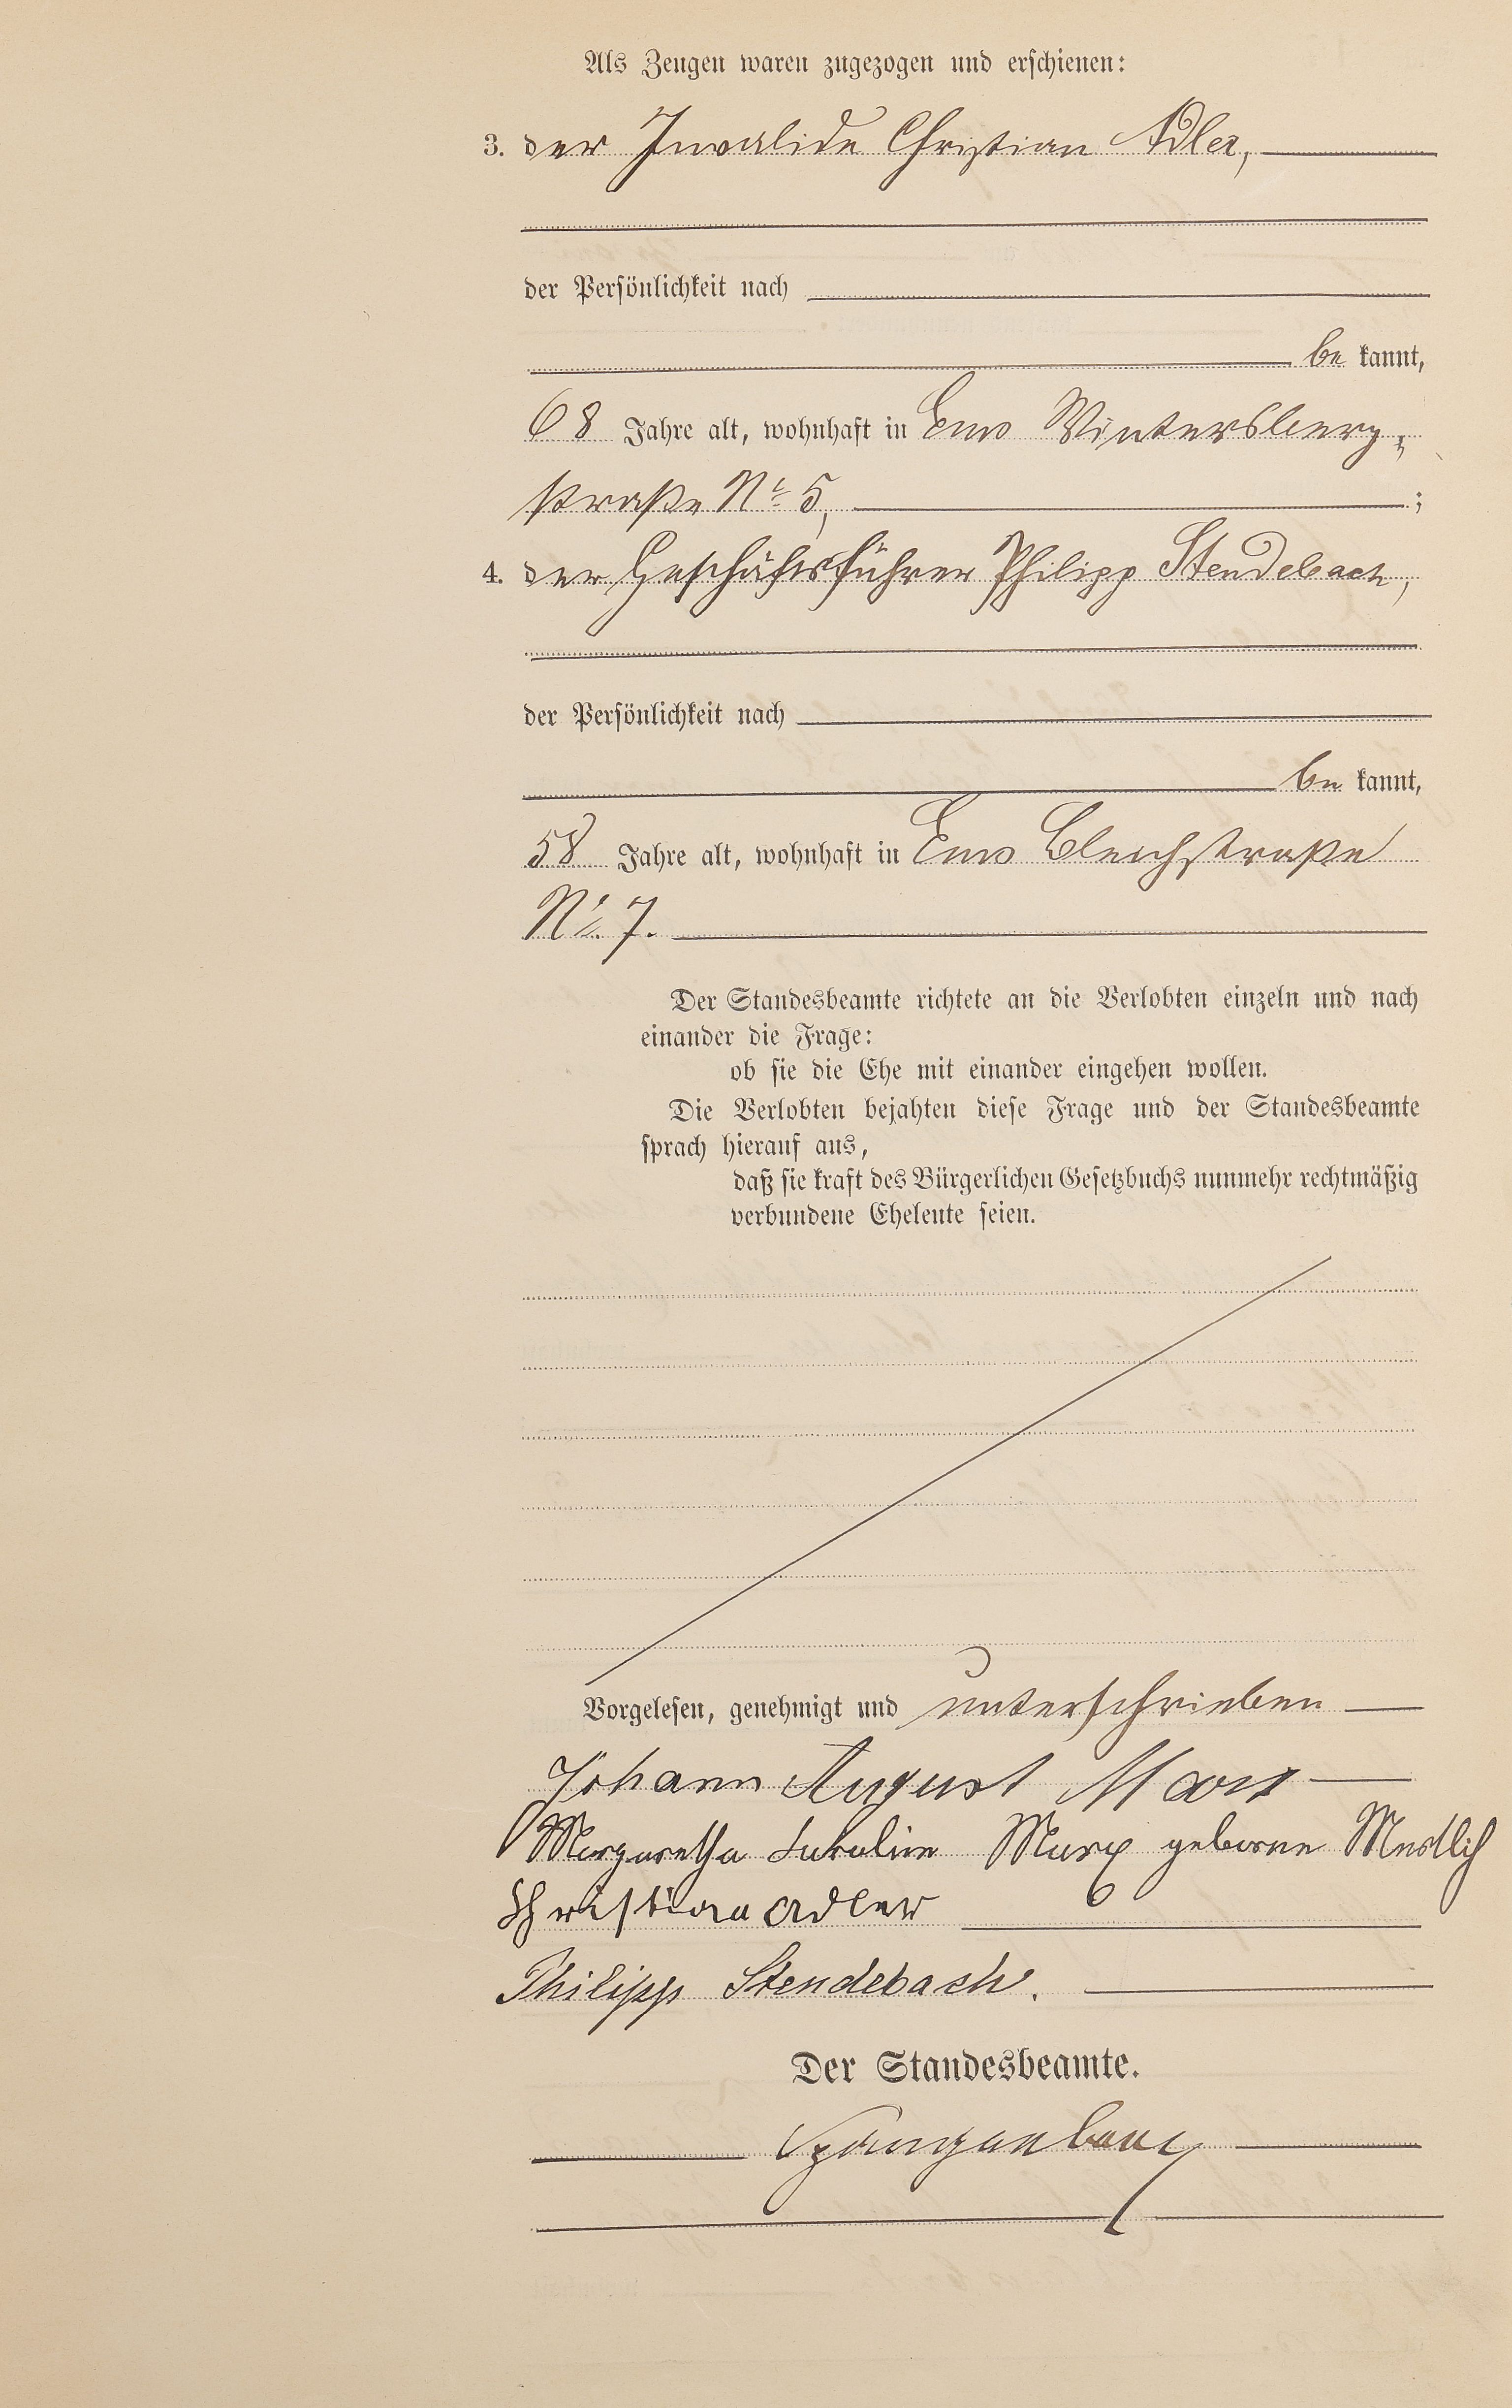 Als Zeugen waren zugezogen und erschienen:
3. der Invalide Christian Adler,
der Persönlichkeit nach
be kannt,
68 Jahre alt, wohnhaft in Ems Wintersberg-
straße No 5, ;
4. der Geschäftsführer Philipp Stendebach,
der Persönlichkeit nach
be kannt,
58 Jahre alt, wohnhaft in Ems Bleichstraße
No 7.
Der Standesbeamte richtete an die Verlobten einzeln und nach
einander die Frage:
ob sie die Ehe mit einander eingehen wollen.
Die Verlobten bejahten diese Frage und der Standesbeamte
sprach hierauf aus,
daß sie kraft des Bürgerlichen Gesetzbuchs nunmehr rechtmäßig
verbundene Eheleute seien.
Vorgelesen, genehmigt und unterschrieben
Johann August Marx
Margaretha Marx geborne
Christian Adler
Philipp Stendebach.
Der Standesbeamte.
Spangenberg